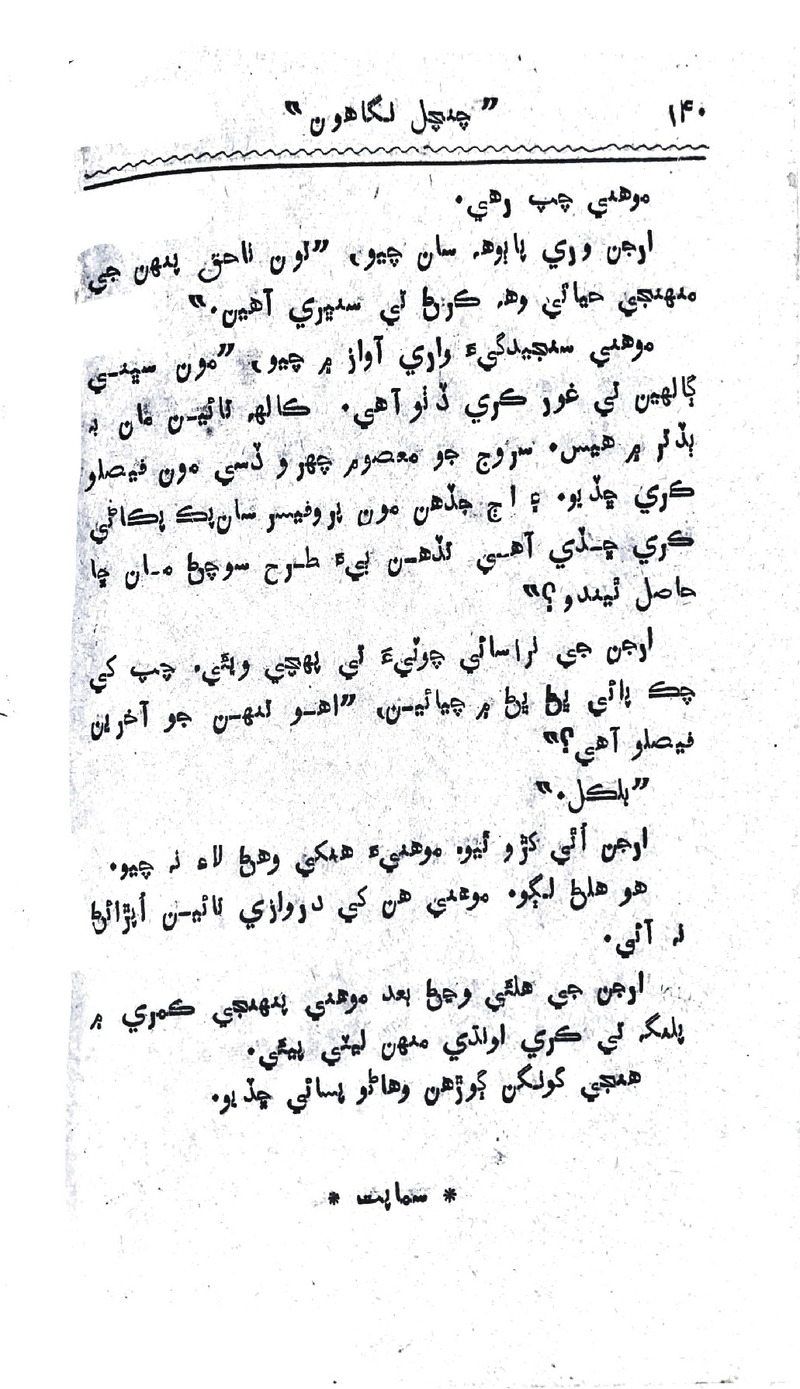 ۱۴۰ ”چنچل نگاهون“
موهني چپ رهي.
ارجن وري پاٻوهہ سان چيو، ”تون ناحق پنهن جي
منهنجي حياتي وهہ ڪرڻ تي سنڀري آهين.“
موهني سنجيدگيءَ واري آواز ۾ چيو، ”مون سڀني
ڳالهين تي غور ڪري ڏٺو آهي. ڪالهہ تائين مان بہ
ٻڏتر ۾ هيس. سروج جو معصوم چهرو ڏسي مون فيصلو
ڪري ڇڏيو. ۽ اڄ جڏهن مون پروفيسر سان پڪ پڪائي
ڪري ڇڏي آهي تڏهن ٻيءَ طرح سوچڻ مان ڇا
حاصل ٿيندو؟“
ارجن جي نراسائي چوٽيءَ تي پهچي ويئي. چپ کي
چڪ پائي ڀڻ ڀڻ ۾ چيائين، ”اهو تنهن جو آخرين
فيصلو آهي؟“
”بلڪل.“
ارجن اُٿي کڙو ٿيو. موهنيءَ هنکي وهڻ لاءِ نہ چيو.
هو هلڻ لڳو. موهني هن کي دروازي تائين اُپڙائڻ
نہ آئي.
ارجن جي هلئي وڃڻ بعد موهني پنهنجي ڪمري ۾
پلنگہ تي ڪري اونڌي منهن ليٽي پيئي.
هنجي گولگن ڳوڙهن وهاڻو پسائي ڇڏيو.
* سماپت *